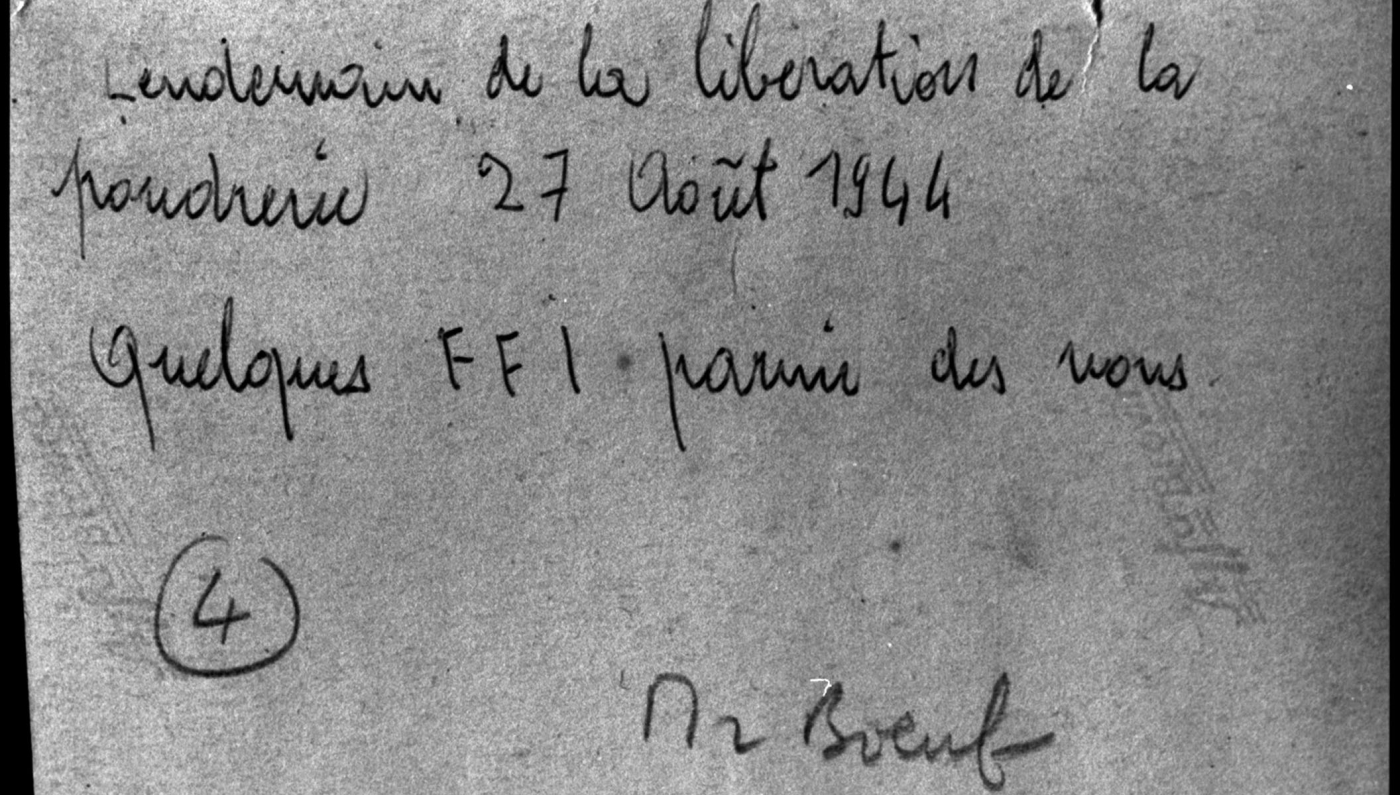 Lendemain de la libération de la
poudrerie 27 Août 1944
Quelques FFI parmi des nous
4
Mr Boeuf